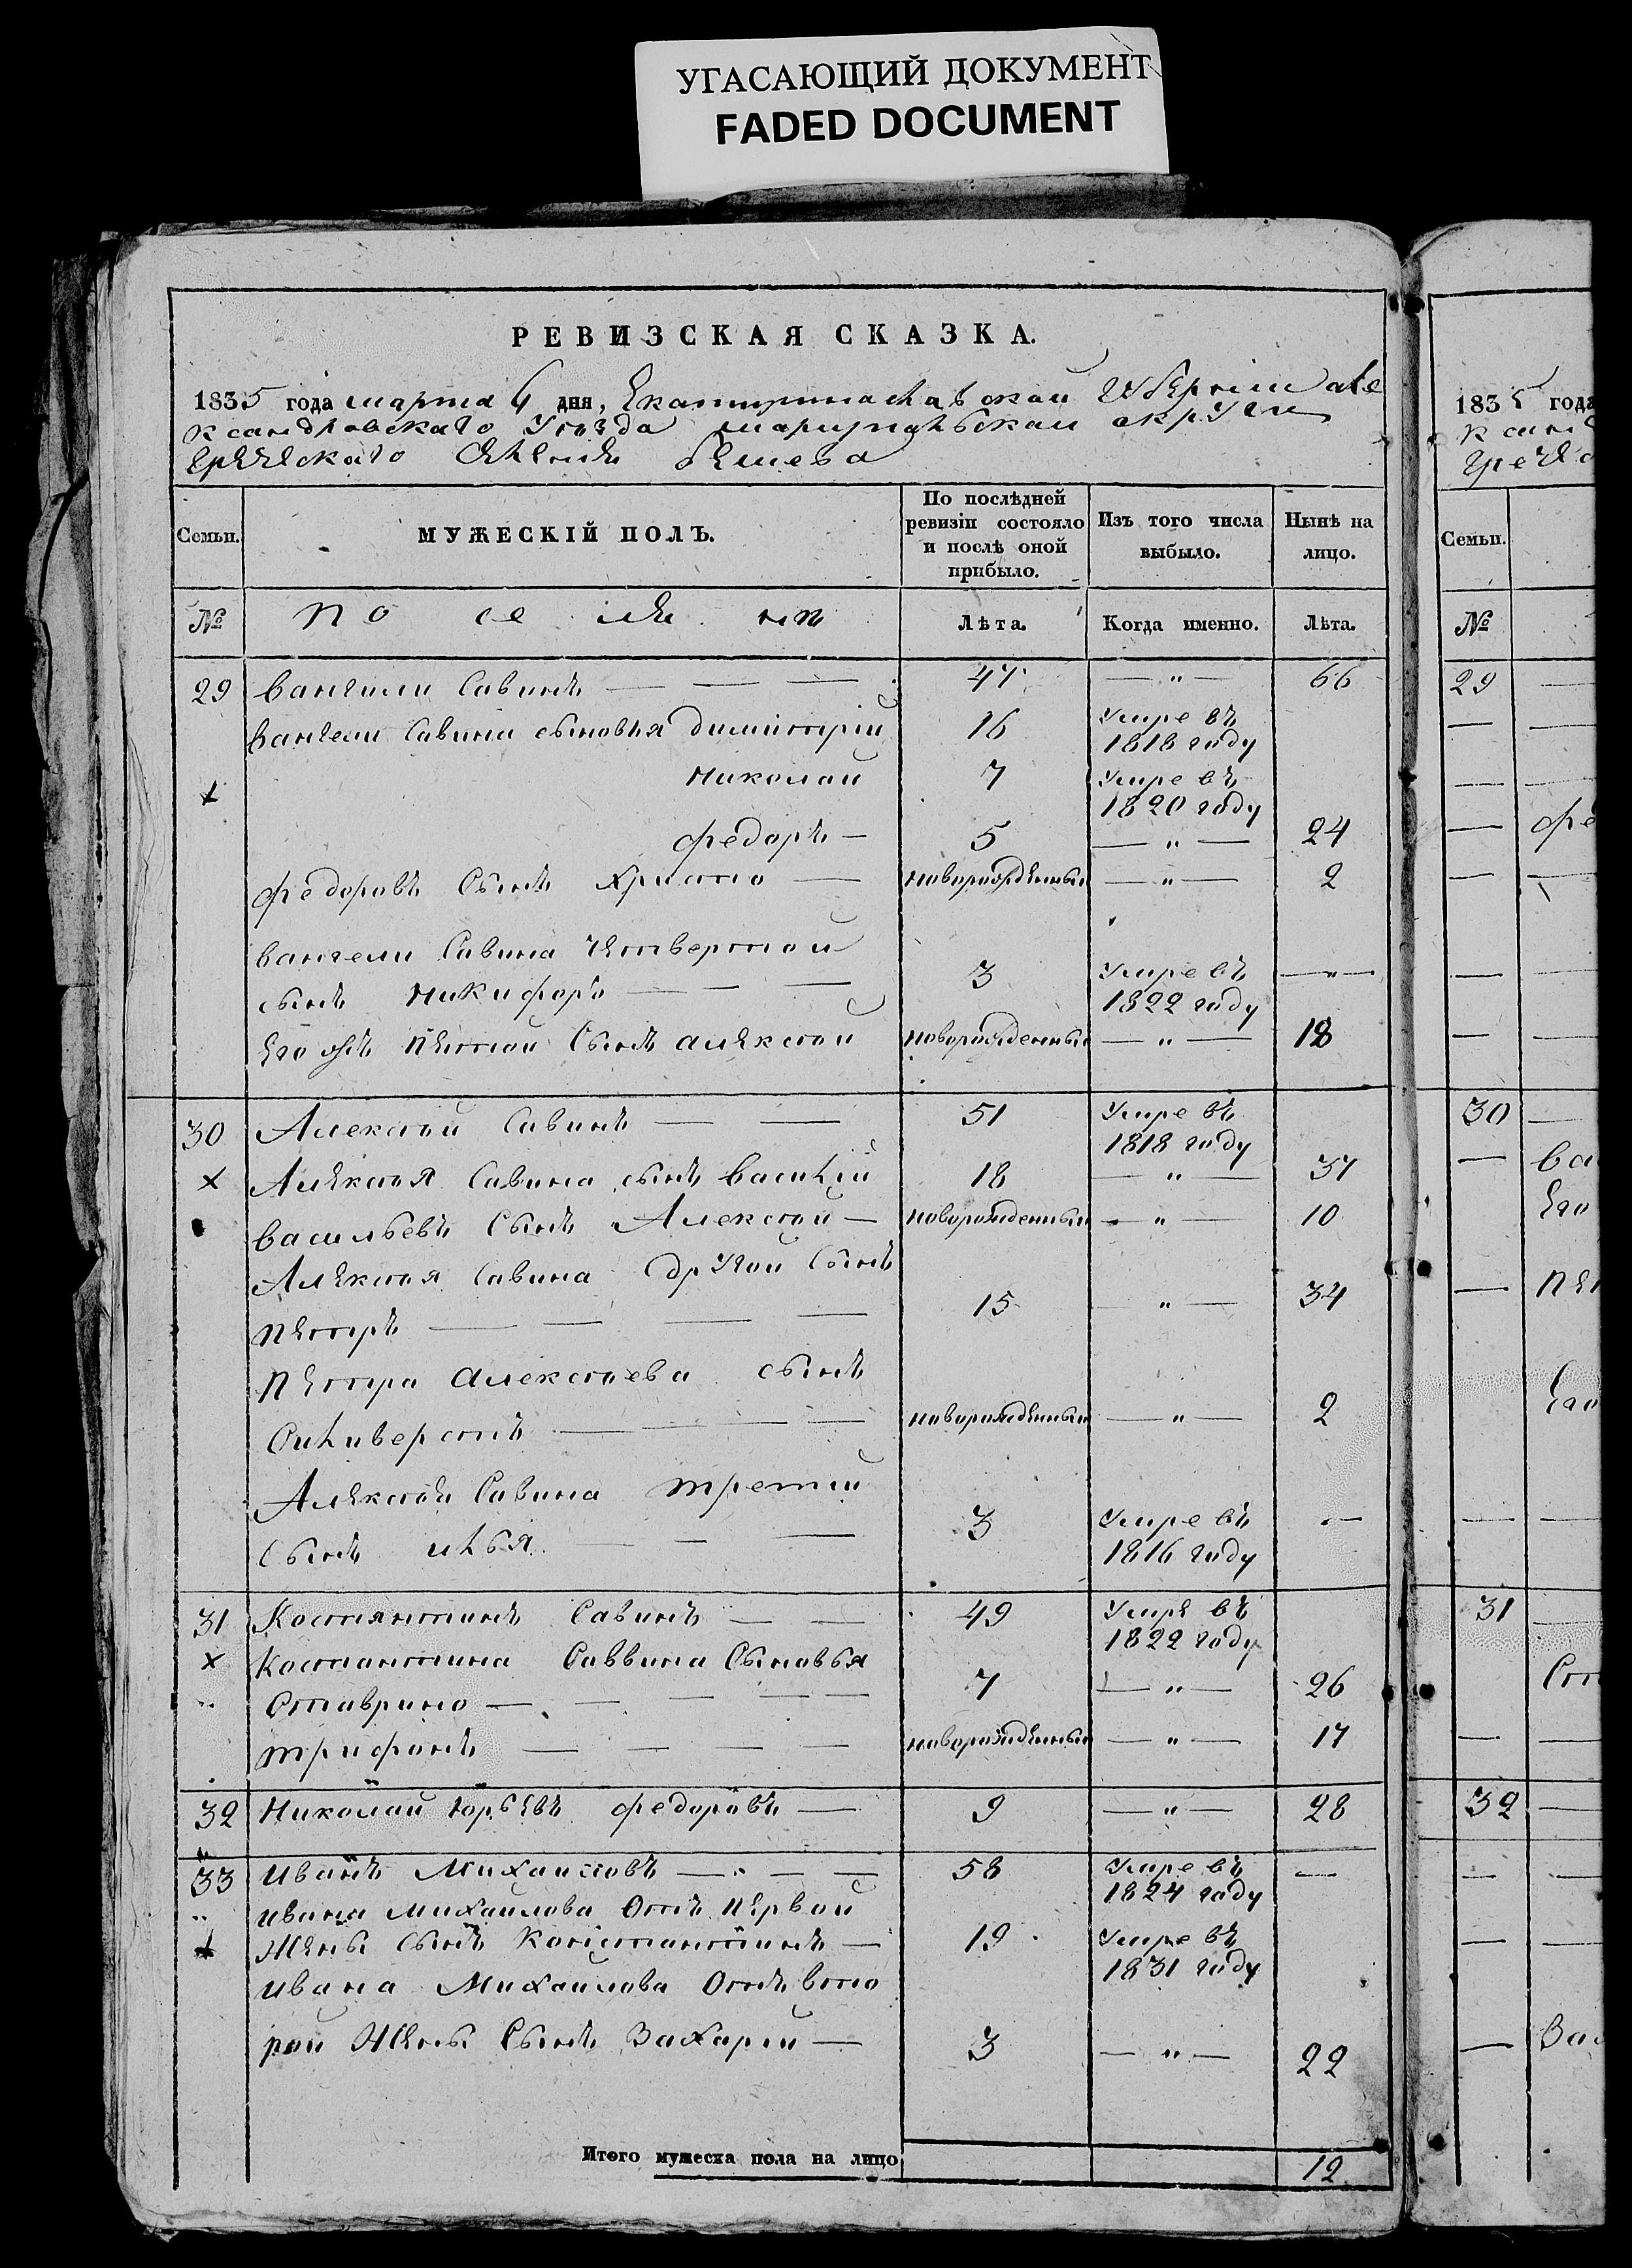 УГАСАЮЩИЙ ДОКУМЕНТ
FADED DOCUMENT
РЕВИЗСКАЯ СКАЗКА.
1835 года марта 6 дня, Екатеринославской Губернии Але
ксандровскаго Уезда мариупольскаи округи
греческаго селения бешева
Семьи.
МУЖЕСКІЙ ПОЛЪ.
По послѣдней ревизіи состояло и послѣ оной прибыло.
Изъ того числа выбыло.
Нынѣ на лицо.
№ по се ля нн Лѣта. Когда именно. Лѣта.
29 вангили Савинъ — — — 47 — " — 66
вангели Савина сыновья димитрій 16 Умре въ 1818 году
николай 7 Умре въ 1820 году
федоръ — 5 — " — 24
федоровъ Сынъ Христо — новорожденный — " — 2
вангели Савина четвертой
сынъ никифоръ — — — 3 Умре въ 1822 году — " —
Его жъ пятой Сынъ алексей новорожденный — " — 18
30 Алексей Савинъ — — 51 Умре въ 1818 году
× Алексея Савина сынъ василій 18 — " — 37
васильевъ Сынъ Алексей — новорожденный — " — 10
Алексея Савина другой Сынъ
петръ — — — — 15 — " — 34
петра алексеева сынъ
Силиверстъ — — — новорожденный — " — 2
Алексея Савина третій
Сынъ илья — — — 3 Умре въ 1816 году —
31 Костянтинъ Савинъ — — 49 Умре въ 1822 году
× Костантина Саввина Сыновья
Ставрино — — — — — 7 — " — 26
трифонъ — — — — новорожденный — " — 17
32 Николай юрьевъ федоровъ — 9 — " — 28
33 иванъ Михаиловъ — — — 58 Умре въ 1824 году —
ивана михаилова Отъ первой
жены сынъ Константинъ — 19 Умре въ 1831 году
ивана Михаилова Отъ вто
рой жены Сынъ Захарій — 3 — " — 22
Итого мужеска пола на лицо 12
1835 года
Семьи.
№
29
фе
30
ва
Его
пе
Его
31
Ст
32
За